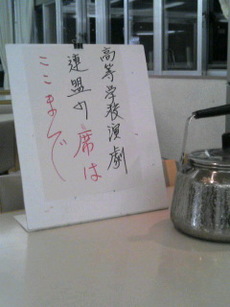 高等学校演劇
連盟の席は
ここまで